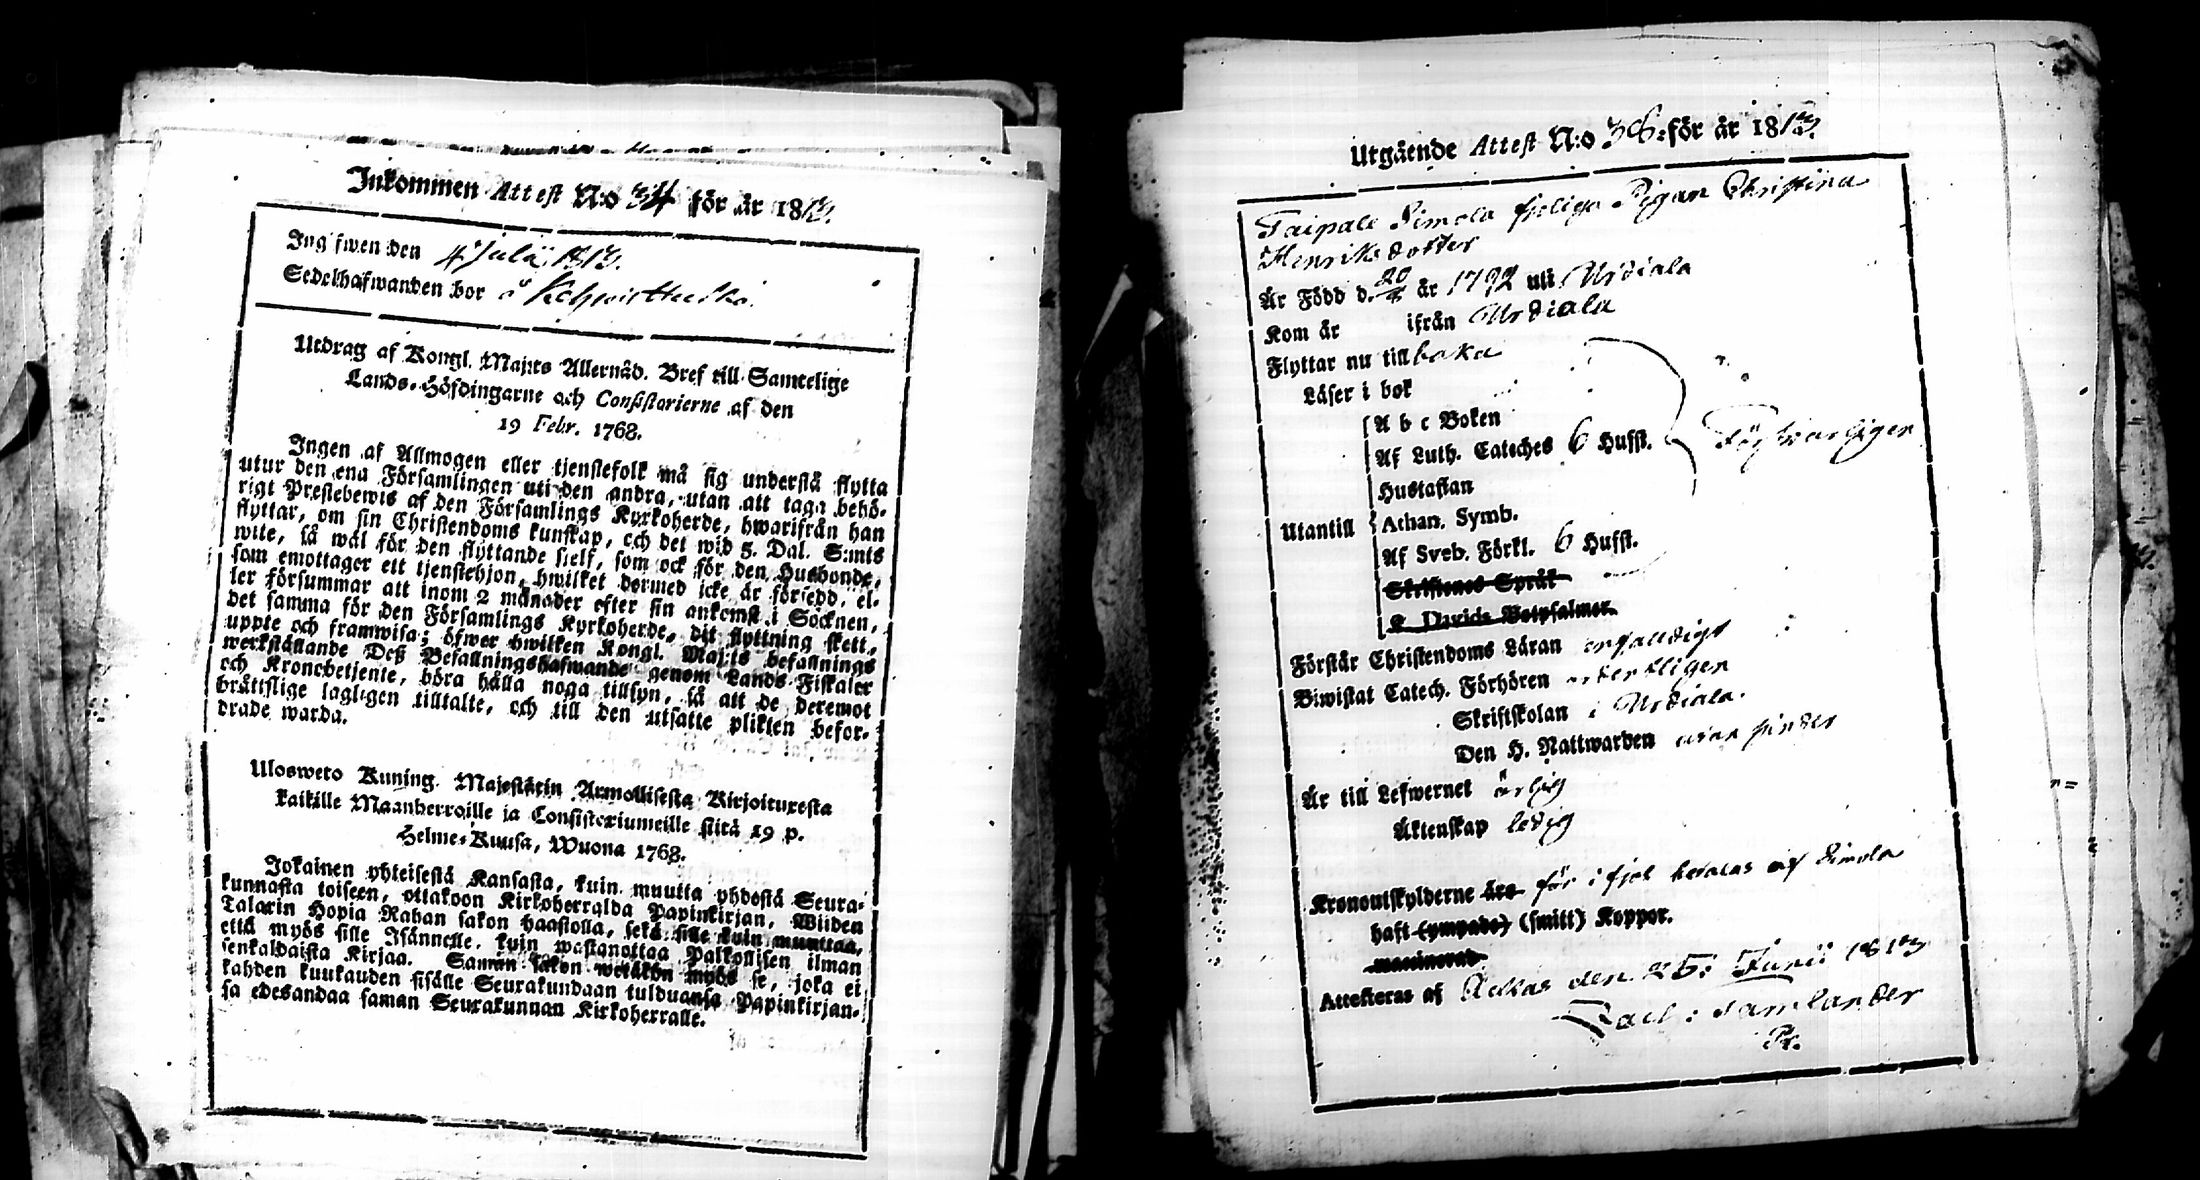 Inkommen Attest N:o 34 för år 1813.
Ingifwen den 4 Julii 1813.
Sedelhafwanden bor å
Utdrag af Kongl. Maj:ts Allernåd. Bref till Samtelige
Lands-Höfdingarne och Consistorierne af den
19 Febr. 1768.
Ingen af Allmogen eller tjenstefolk må sig understå flytta
utur den ena Församlingen uti den andra, utan att taga behö-
rigt Prestebewis af den Församlings Kyrkoherde, hwarifrån han
flyttar, om sin Christendoms kunskap, och det wid 5. Dal. S:mts
wite, så wäl för den flyttande sielf, som ock för den Husbonde,
som emottager ett tjenstehjon, hwilket dermed icke är försedd, el-
ler försummar att inom 2 månader efter sin ankomst i Socknen,
det samma för den Församlings Kyrkoherde, dit flyttning skett,
uppte och framwisa; öfwer hwilken Kongl. Maj:ts befallnings
werkställande Deß Befallningshafwande genom Lands-Fiskaler
och Kronobetjente, böra hålla noga tillsyn, så att de deremot
bråttslige lagligen tilltalte, och till den utsatte plikten befor-
drade warda.
Ulosweto Kuning. Majestätin Armollisesta Kirjoituxesta
kaikille Maanherroille ja Consistoriumeille siitä 19 p.
Helme-Kuusa, Wuona 1768.
Jokainen yhteisestä Kansasta, kuin muutta yhdestä Seura-
kunnasta toiseen, ottakoon Kirkoherralda Papinkirjan, Wiiden
Talarin Hopia Rahan sakon haastolla, sekä sille kuin muuttaa,
että myös sille Isännelle, kuin wastanottaa Palkollisen ilman
senkaldaista Kirjaa. Saman sakon wetäkön myös se, joka ei
kahden kuukauden sisälle Seurakundaan tulduansa Papinkirjan-
sa edesandaa saman Seurakunnan Kirkoherralle.
Utgående Attest N:o 36 för år 1813.
Taipale Simola Pigan Christina
Henriksdotter
Är Född d. 20 år 1792 uti Urdiala
Kom år ifrån Urdiala
Flyttar nu tillbaka
Läser i bok
A b c Boken
Af Luth. Cateches 6 Hufst. Försvarligen
Hustaflan
Utantill Athan. Symb.
Af Sveb. Förkl. 6 Hufst.
Skriftenes Språk
K. Davids Botpsalmer
Förstår Christendoms Läran enfaldigt
Biwistat Catech. Förhören ordentligen
Skriftskolan i Urdiala.
Den H. Nattwarden utan hinder
Är till Lefwernet ärlig
Äktenskap ledig
Kronoutskylderne äro för i fjol betalas af Simola
haft (ympade) (smitt) Koppor.
vaccinerad
Attesteras af Ackas den 25: Junii 1813
Zach: Samlander
Pr.